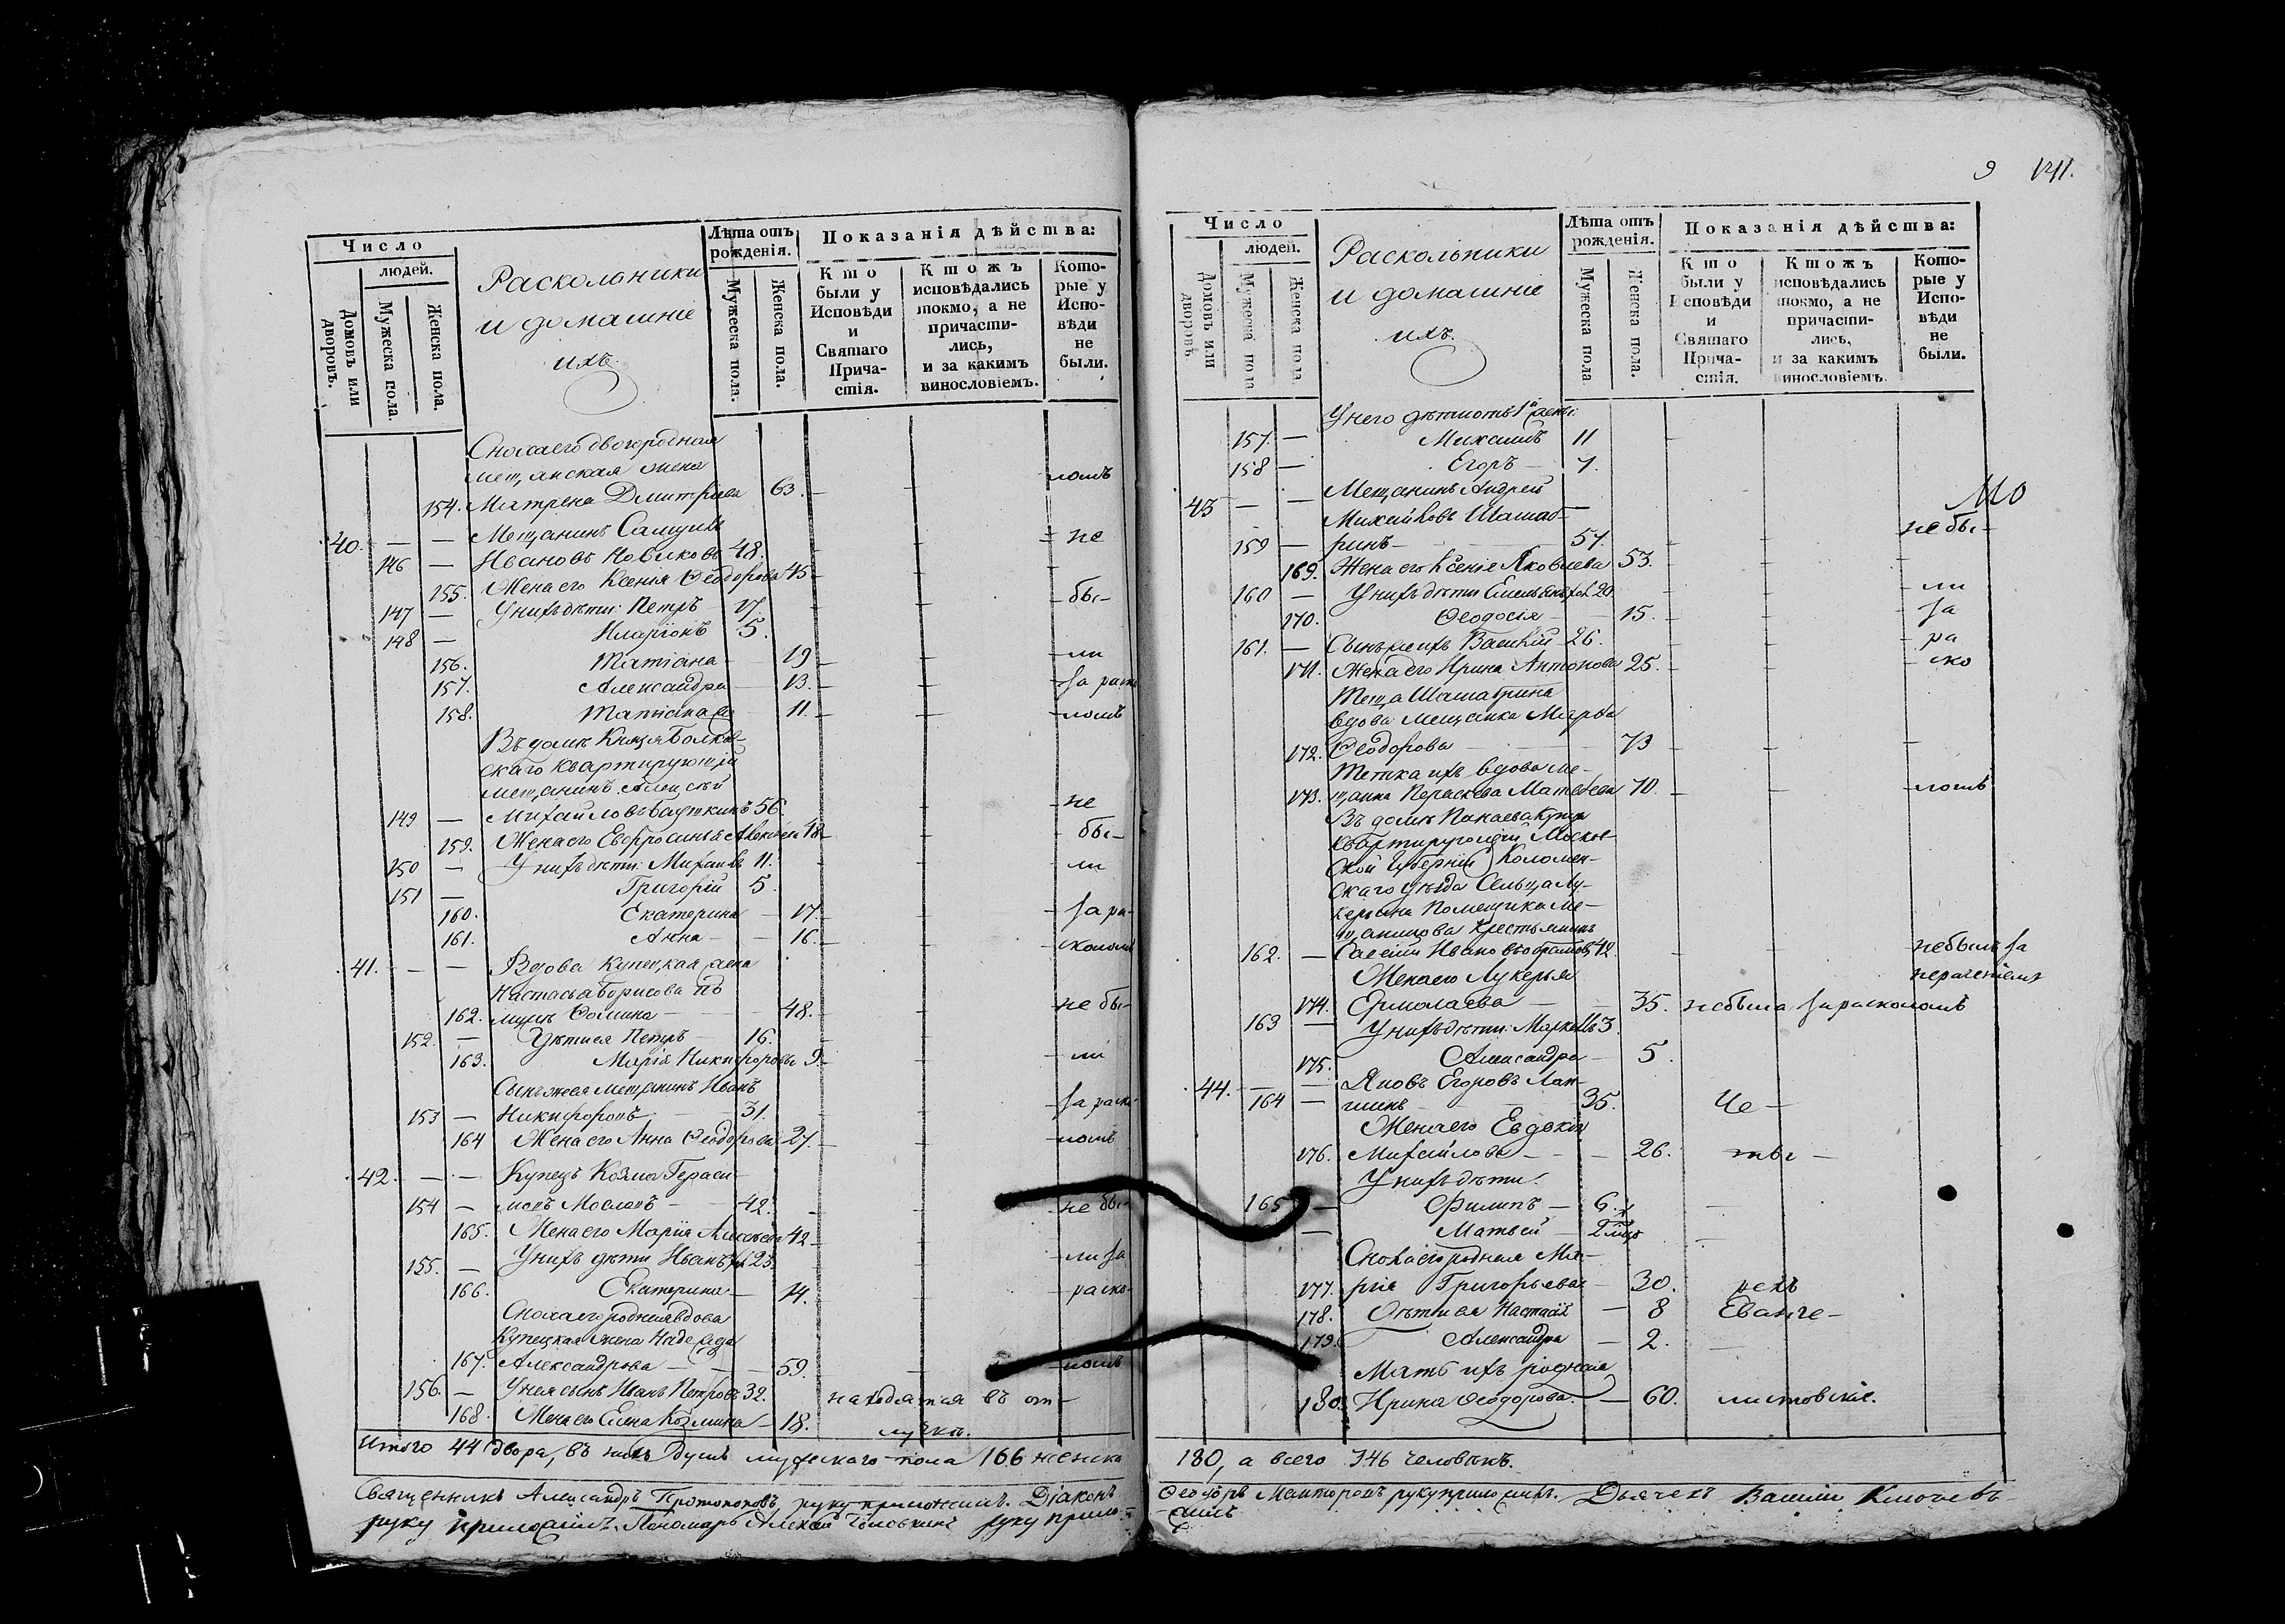 Число
людей.
Домовъ или дворовъ.
Мужеска пола.
Женска пола.
Раскольники
и домашніе
ихъ.
Лѣта отъ рожденія.
Мужеска пола.
Женска пола.
Показанія дѣйства:
Кто были у Исповѣди и Святаго Причастія.
Ктожъ исповѣдались токмо, а не причастились, и за какимъ винословіемъ.
Которые у Исповѣди не были.
Сноха его двоюродная
мещанская жена
ломъ
154. Матрена Дмитріева 63.
40. — — Мещанинъ
не
146 — Ивановъ Новиковъ 48.
155. Жена его Ксенія Ѳеодорова 45
147 — У нихъ дѣти: Петръ 17.
бы-
148 — Иларіонъ 5.
156. Татіана 19
ли
157. Александра 13.
за раско
158. Татіана 11.
ломъ
Въ домѣ Князя
скаго квартирующій
мещанинъ Алексѣй
149 — Михайловъ 56.
не
159. Жена его Евфросинья
бы-
150 — У нихъ дѣти: Михаилъ 11.
ли
151 — Григорій 5.
160. Екатерина — 17.
за ра-
161. Анна — 16.
сколомъ
41. — — Вдова купецкая жена
Настасья Борисова
162. Ѳомина — 48.
не бы-
152. — У дѣти ея Петръ 16.
163. Марія Никифорова 9.
ли
Сынъ же ея мещанинъ Иванъ
153 — Никифоровъ 31.
за раско
164 Жена его Анна Ѳеодорова 27.
ломъ
42. — — Купецъ Козма Гераси-
154 — мовъ Масловъ — 42.
не бы-
165. Жена его Марія Алексѣева 42
155. — У нихъ дѣти Иванъ 23.
ли за
166. Екатерина — 14.
раско-
Сноха его родная вдова
купецкая жена Надежда
167. Александрова — — 59.
ломъ
156. — У нея сынъ Иванъ Петровъ 32.
находятся въ от-
168. Жена его Елена Козмина — 18.
лучкѣ.
Итого 44 двора, въ нихъ душъ мужескаго пола 166 женска
Священникъ Александръ Протопоповъ, руку приложилъ. Діаконъ
руку приложилъ. Пономарь Алексѣй руку прило-
9 141.
Число
людей.
Домовъ или дворовъ
Мужеска пола
Женска пола
Раскольники
и домашніе
ихъ.
Лѣта отъ рожденія.
Мужеска пола
Женска пола.
Показанія дѣйства:
Кто были у Исповѣди и Святаго Причастія.
Ктожъ исповѣдались токмо, а не причастились, и за какимъ винословіемъ.
Которые у Исповѣди не были.
У него дѣти отъ 1й жены:
157. — Михаилъ 11
158 — Егоръ — 7.
43 — — Мещанинъ Андрей
Михайловъ Шашаб-
не бы-
159 — ринъ — 57.
169. Жена его Ксенія Яковлева 53.
160 — У нихъ дѣти Емельянъ 20
ли
170. Ѳеодосія — 15.
за
161. — Сынъ же ихъ Василій 26.
ра
171. Жена его Ирина Антонова 25.
ско
Теща Шашабрина
вдова мещанка Марѳа
172. Ѳеодорова — 73
Тетка ихъ вдова ме-
173. щанка Параскева Матвѣева 70.
ломъ
Въ домѣ купца
квартирующій Москов-
ской губерніи Коломен-
скаго уѣзда Сельца Лу-
помещика Ме-
щанинова крестьянинъ
162. — Савелій Ивановъ 42.
не былъ за
Жена его Лукерья
нераченіемъ
174. Ермолаева — 35. не была за расколомъ
163 — У нихъ дѣти: Маркеллъ 3.
175. Александра — 5.
44. — — Яковъ Егоровъ Лап-
164 — шинъ — 35. Че-
Жена его Евдокія
176. Михайлова — — 26. ты-
У нихъ дѣти:
165 — Филиппъ — 6.
— Матвей — 2
Сноха его родная Ма-
177. рія Григорьева — 30. рехъ
178. Дѣти ея Настасія — 8 Еванге-
179. Александра — 2.
Мать ихъ родная
180. Ирина Ѳеодорова. — 60. листовскіе.
180, а всего 346 человѣкъ.
Ѳеодоръ руку приложилъ. Дьячекъ Василій Ключевъ
-жилъ